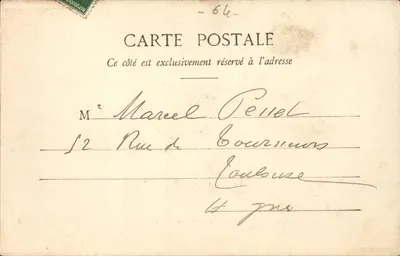 - 64 -
CARTE POSTALE
Ce côté est exclusivement réservé à l'adresse
Mr Marcel
52 Rue de Tourneurs
Toulouse